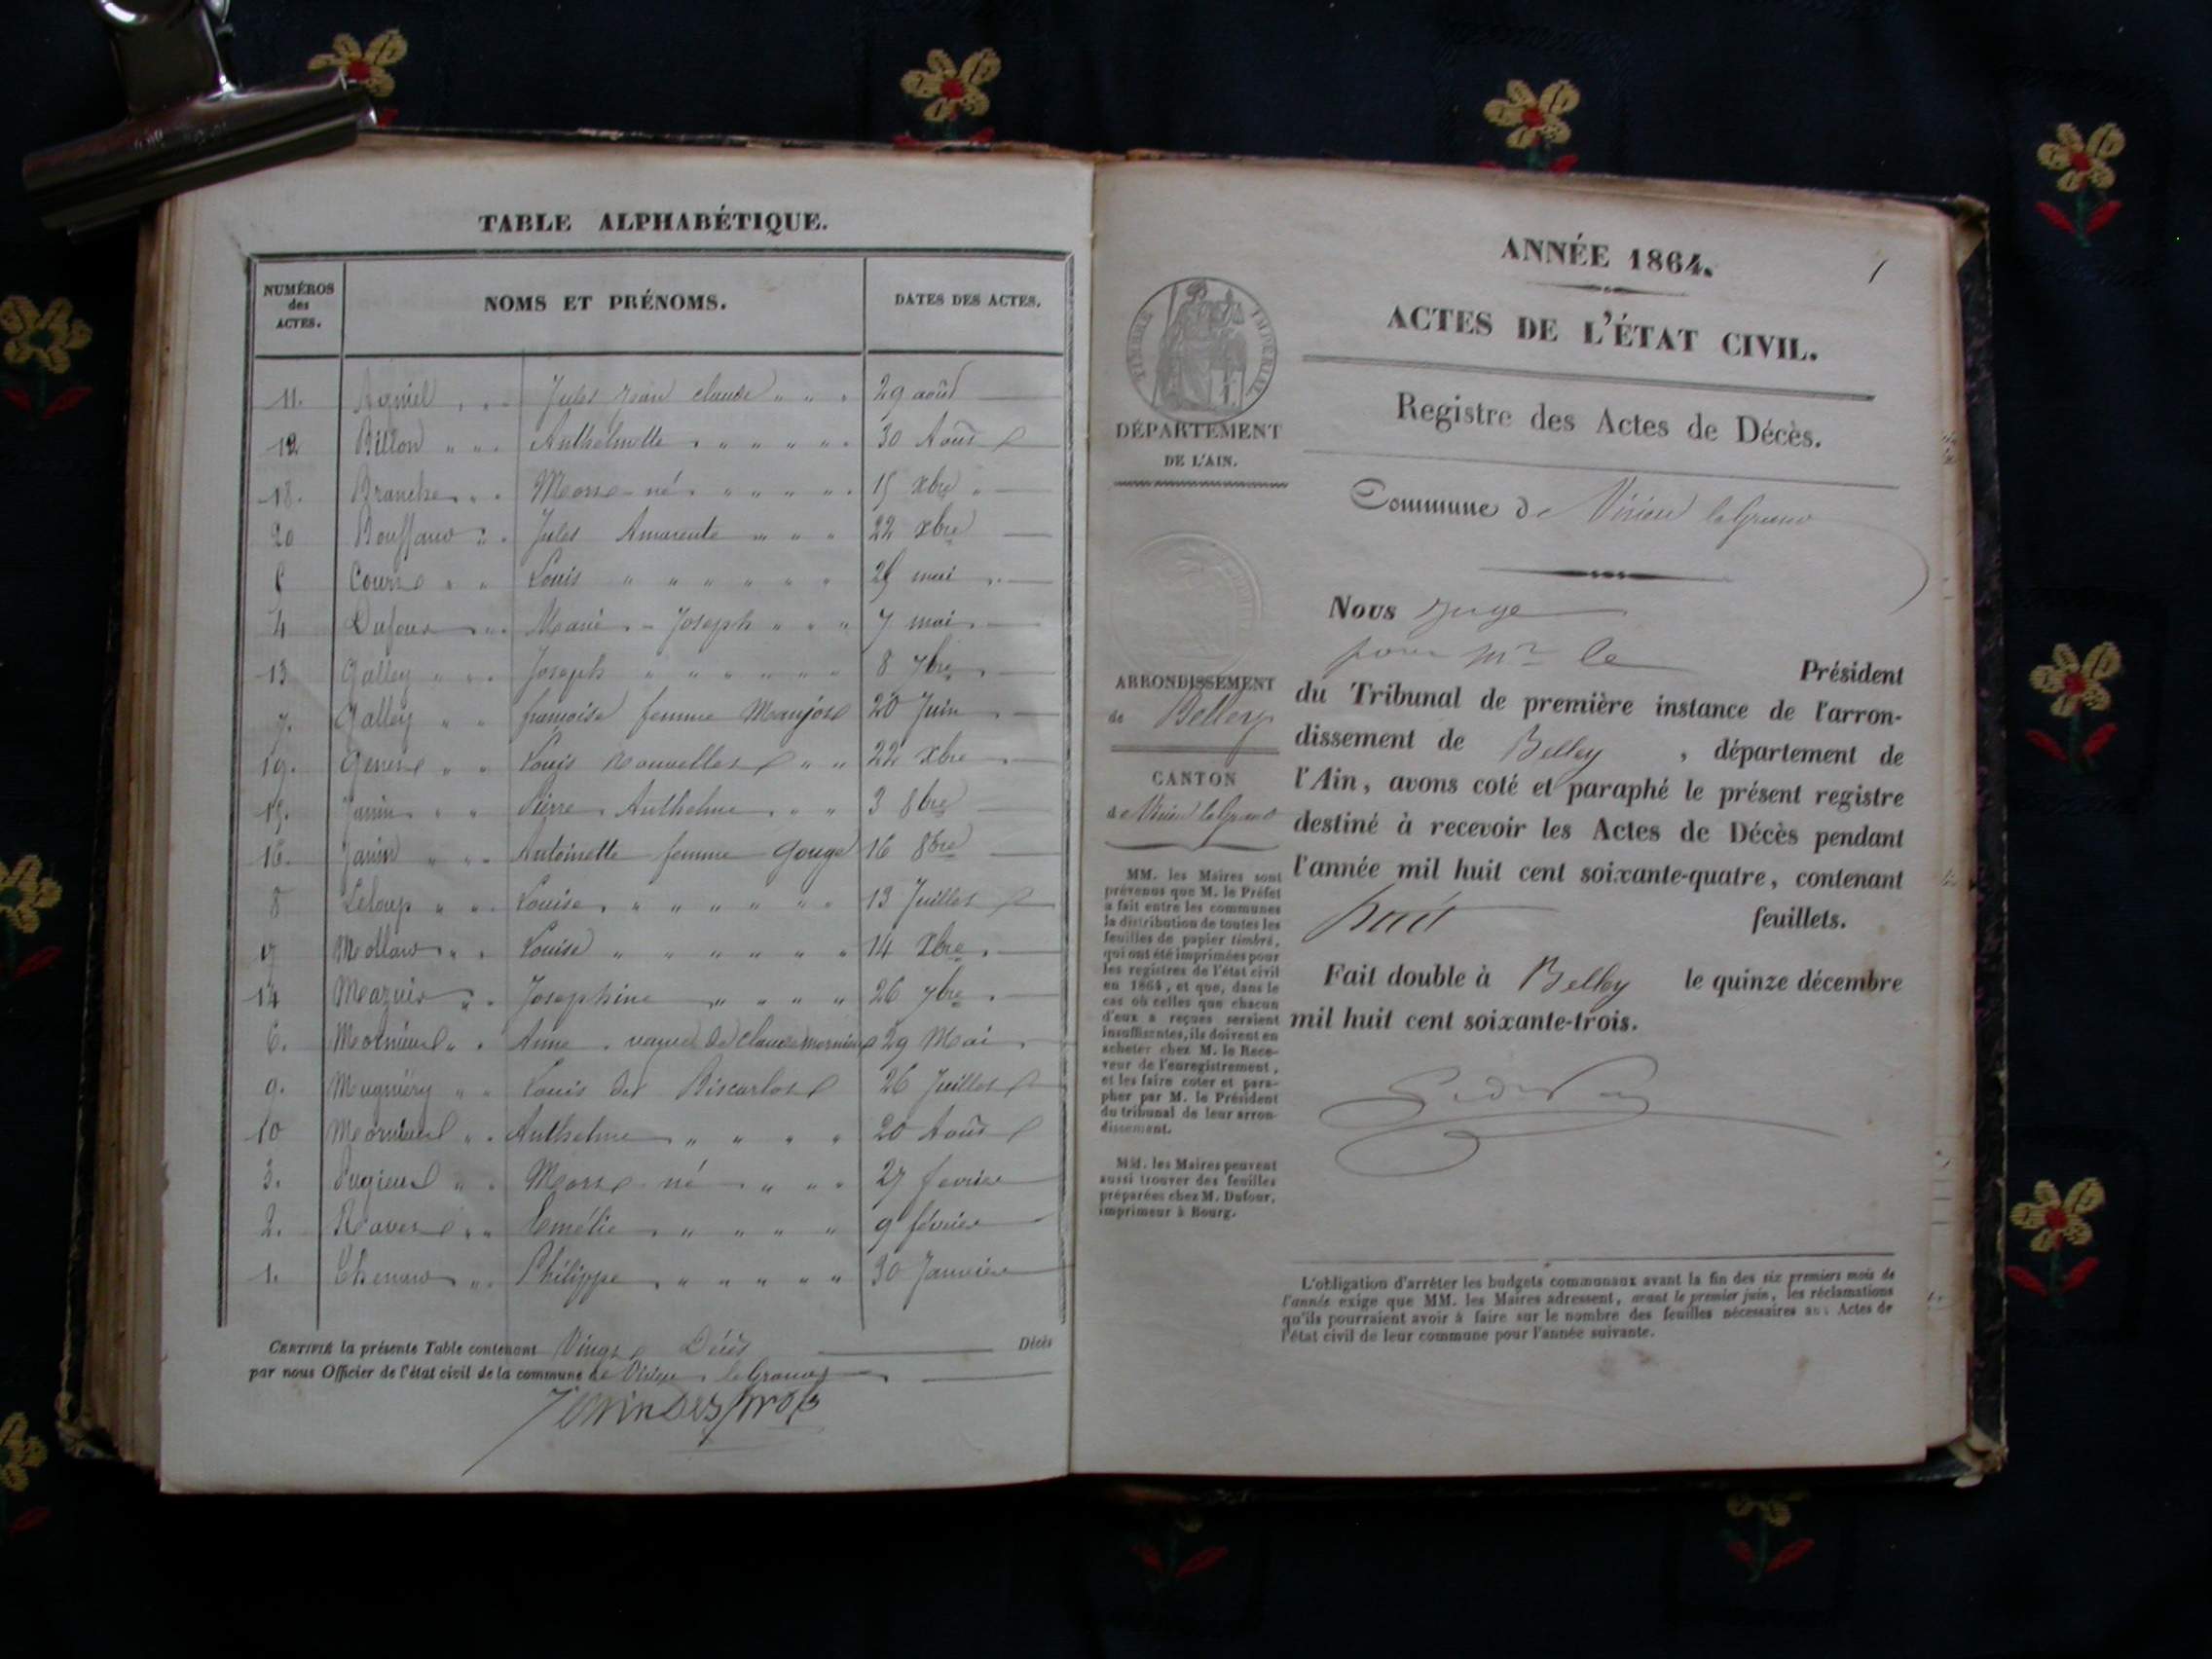 TABLE ALPHABÉTIQUE.
NUMÉROS des ACTES.
NOMS ET PRÉNOMS.
DATES DES ACTES.
11. Jules Jean claude " " " 29 août
12 Billon " " " Anthelmette " " " " " 30 Août
18. Branche " " Mort-né " " " " " 15 xbre "
20 Jules Amarente " " " 22 xbre
Louis " " " " " " mai
4 Dufour " " Marie - Joseph " " " 7 mai
13 Galley " " " Joseph " " " " " " 8 7bre
7. Galley " " françoise femme 20 Juin
19. " " Louis " " 22 xbre
15. Janin " " Pierre Anthelme " " 3 8bre
16. Janin " " " Antoinette femme Gouge 16 8bre
8 Leloup " " " Louise " " " " " " 13 Juillet
Mollard " " Louise " " " " " " 14 xbre
14 " " Josephine " " " " 26 7bre
6. " " Anne veuve de claude 29 Mai
9. Mugniery " " Louis des 26 Juillet
10 " " Anthelme " " " " 20 Août
3. " " Mort né " " " 27 fevrier
2. " " Emélie " " " " 9 février
1. " " Philippe " " " " " 30 Janvier
CERTIFIÉ la présente Table contenant Vingt Décès Décès
par nous Officier de l'état civil de la commune de Virieu le Grand
ANNÉE 1864.
1
ACTES DE L'ÉTAT CIVIL.
Registre des Actes de Décès.
Commune de Virieu le Grand
TIMBRE IMPERIAL
DÉPARTEMENT
DE L'AIN.
ARRONDISSEMENT
de Belley
CANTON
de Virieu le Grand
MM. les Maires sont
prévenus que M. le Préfet
a fait entre les communes
la distribution de toutes les
feuilles de papier timbré,
qui ont été imprimées pour
les registres de l'état civil
en 1864, et que, dans le
cas où celles que chacun
d'eux a reçues seraient
insuffisantes, ils doivent en
acheter chez M. le Rece-
veur de l'enregistrement,
et les faire coter et para-
pher par M. le Président
du tribunal de leur arron-
dissement.
MM. les Maires peuvent
aussi trouver des feuilles
préparées chez M. Dufour,
imprimeur à Bourg.
Nous Juge
pour Mr le Président
du Tribunal de première instance de l'arron-
dissement de Belley , département de
l'Ain, avons coté et paraphé le présent registre
destiné à recevoir les Actes de Décès pendant
l'année mil huit cent soixante-quatre, contenant
huit feuillets.
Fait double à Belley le quinze décembre
mil huit cent soixante-trois.
L'obligation d'arrêter les budgets communaux avant la fin des six premiers mois de
l'année exige que MM. les Maires adressent, avant le premier juin, les réclamations
qu'ils pourraient avoir à faire sur le nombre des feuilles nécessaires aux Actes de
l'état civil de leur commune pour l'année suivante.